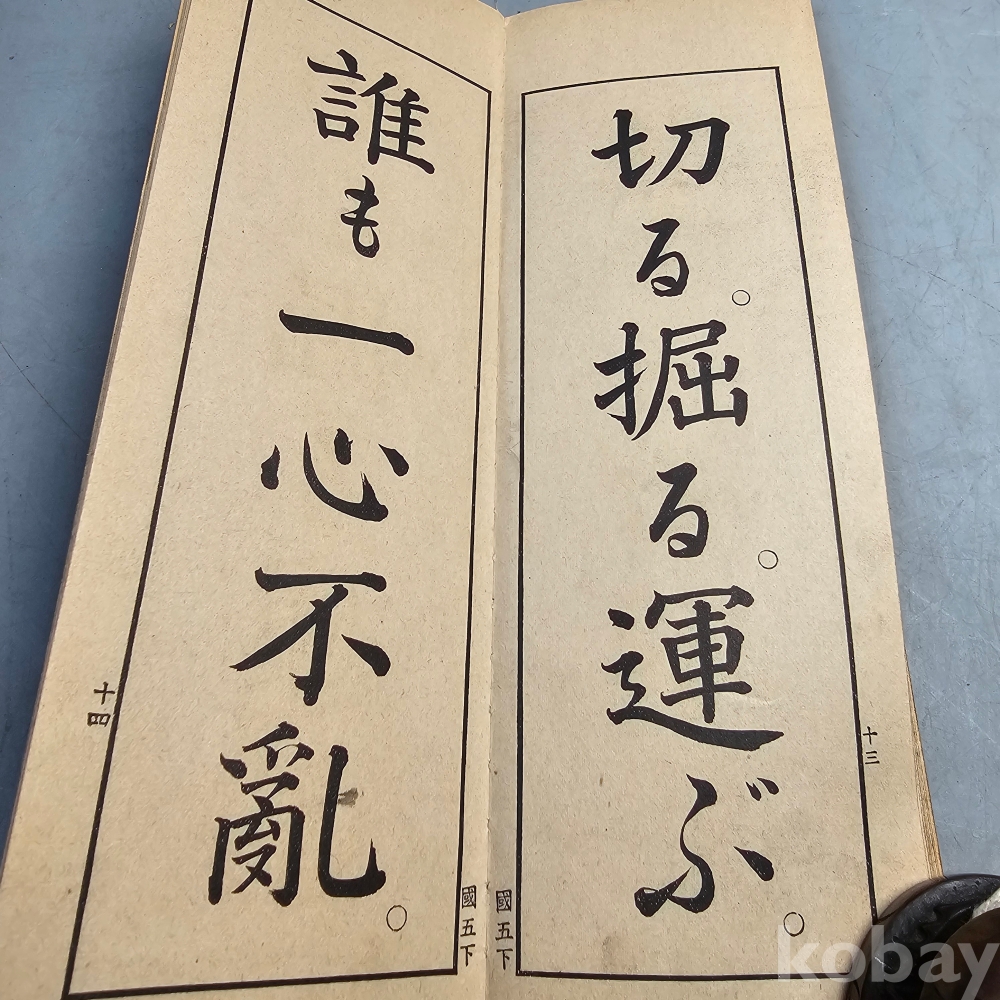 切る。掘る。運ぶ。
十三
國五下
誰も一心不亂。
國五下
十四
kobay